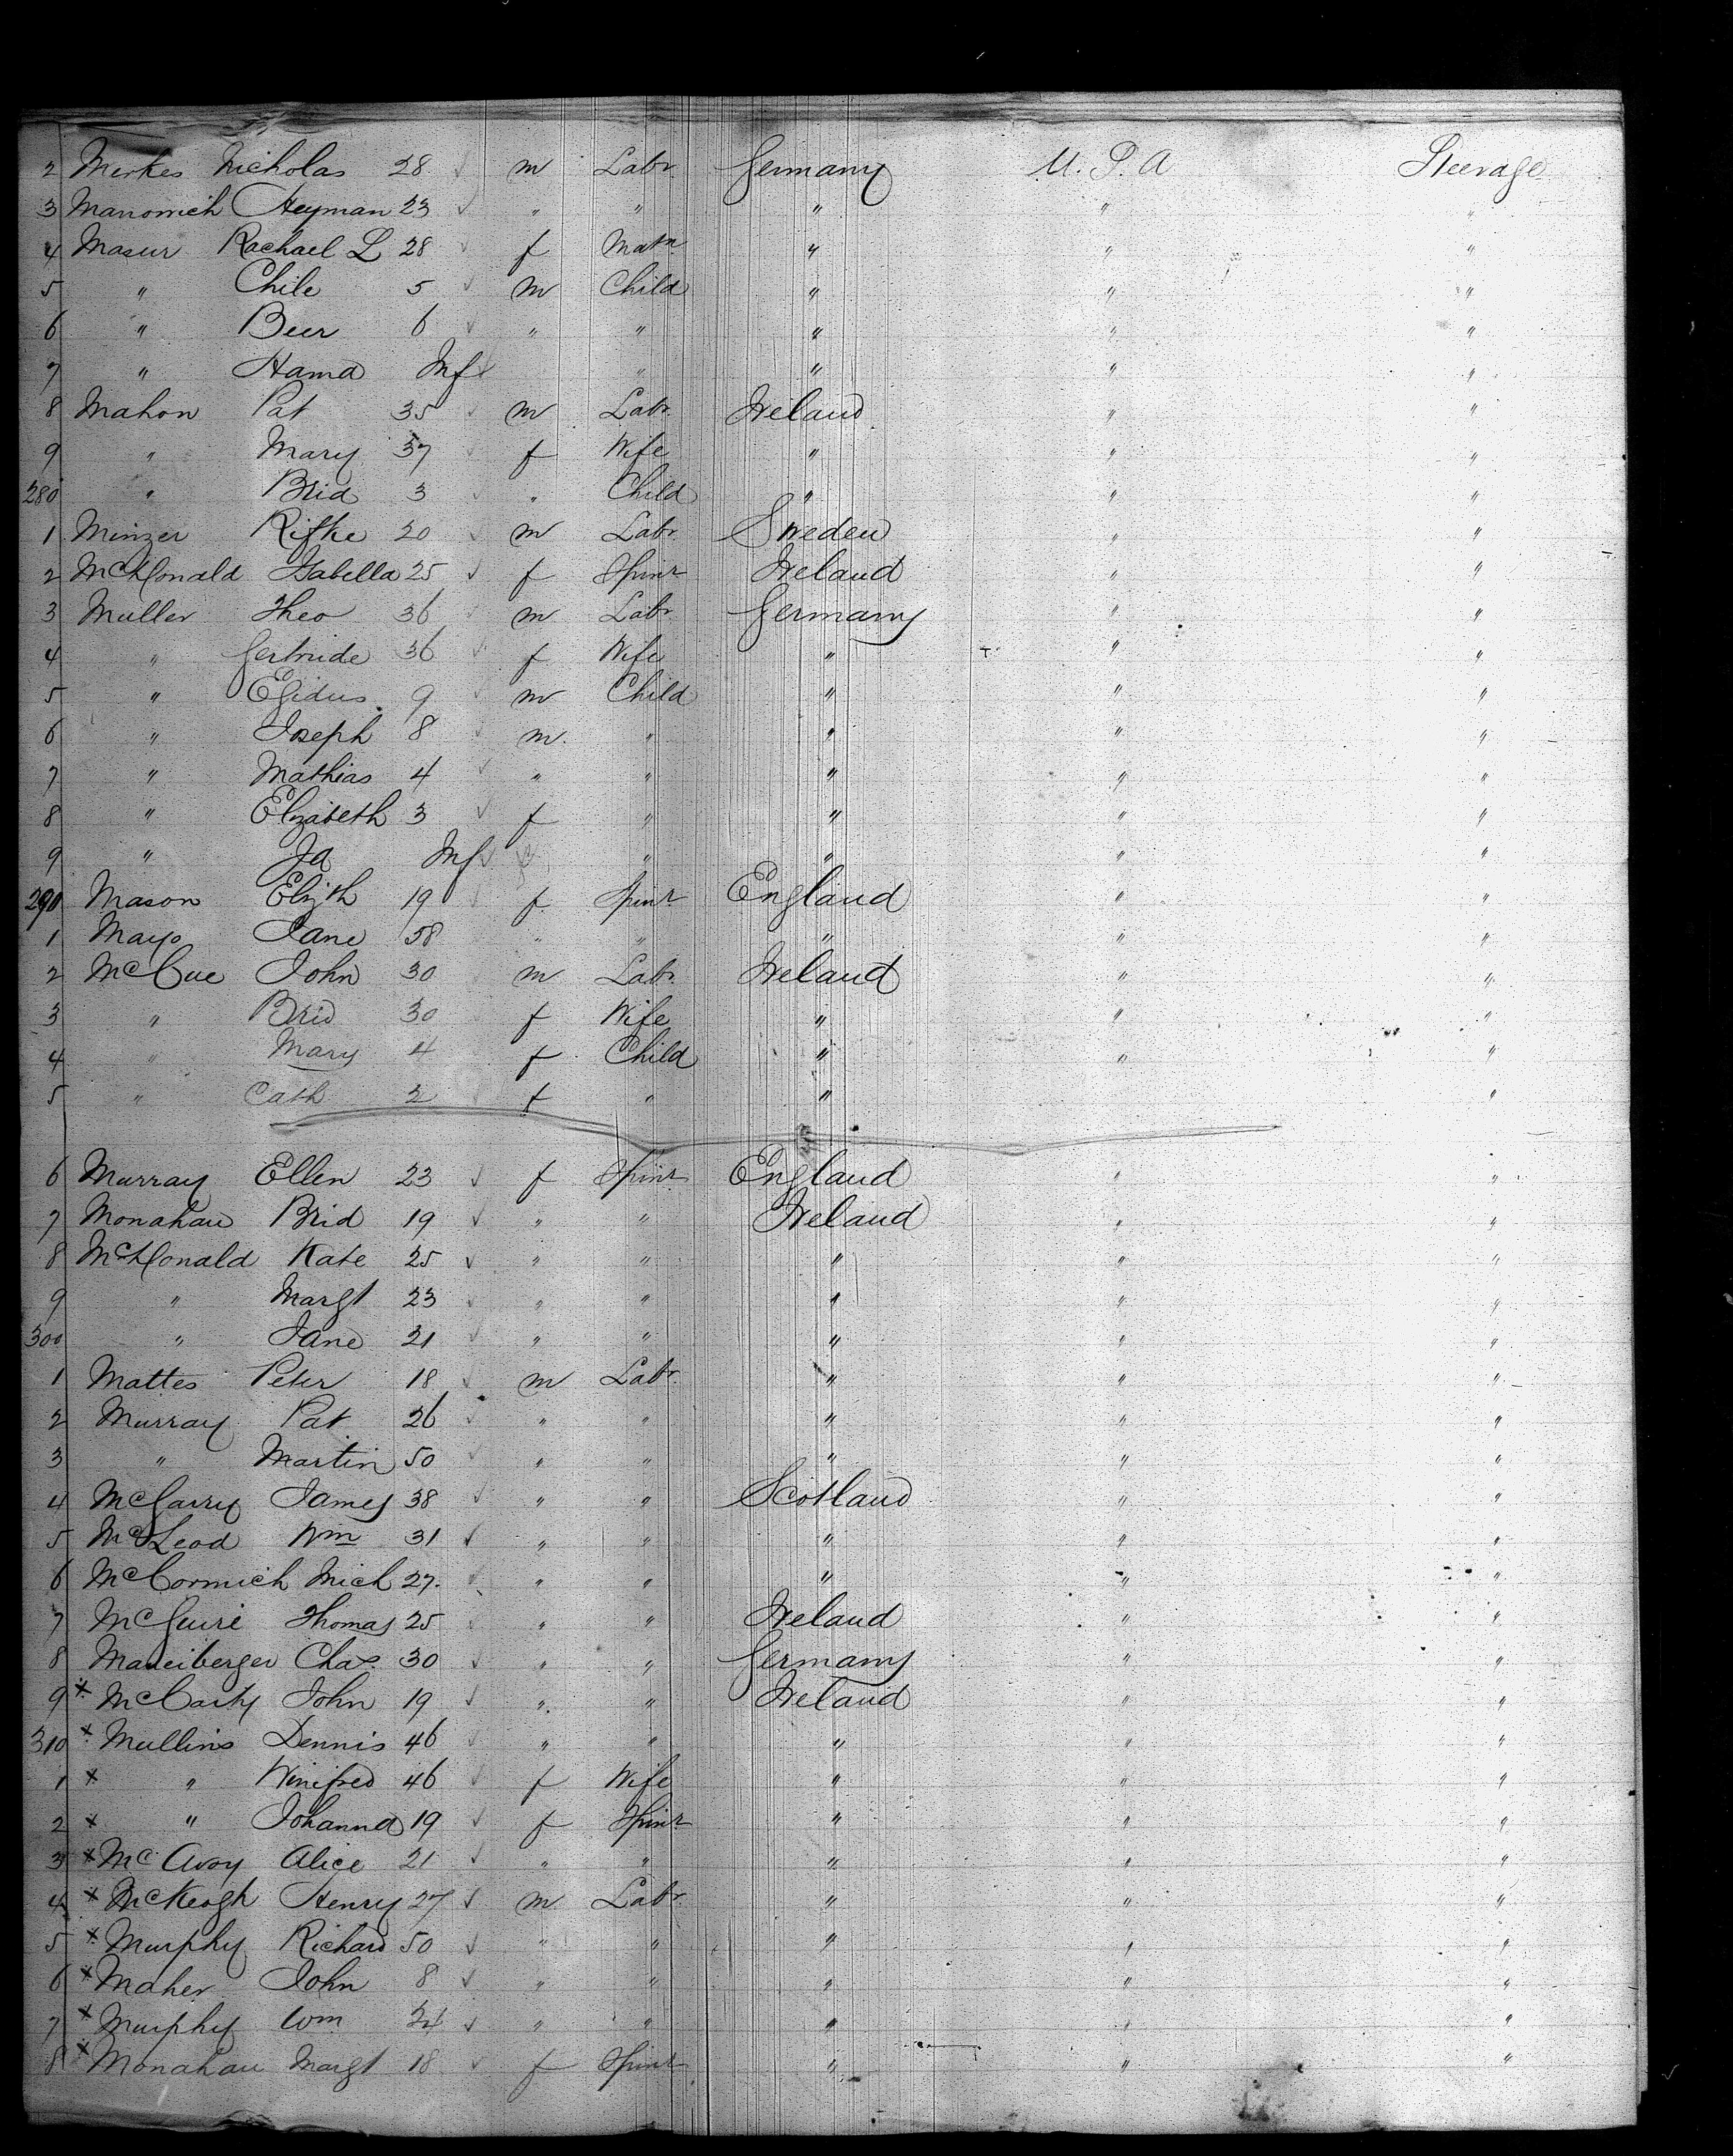 2 Merkes Nicholas 28 ✓ m Labr. Germany U.S.A Steerage
3 Manomich Heyman 23 ✓ " " " " "
4 Masur Rachael L 28 ✓ f Matn " " "
5 " Chile 5 ✓ m Child " " "
6 " Beer 6 ✓ " " " " "
7 " Hama Inf ✓ " " " "
8 Mahon Pat 35 ✓ m Labr. Ireland " "
9 " Mary 37 ✓ f Wife " " "
280 " Brid 3 ✓ " Child " " "
1 Minzer Rifke 20 ✓ m Labr. Sweden " "
2 McDonald Isabella 25 ✓ f Spinr Ireland " "
3 Muller Theo 36 ✓ m Labr. Germany " "
4 " Gertrude 36 ✓ f Wife " " "
5 " Egidus 9 ✓ m Child " " "
6 " Joseph 8 ✓ m. " " " "
7 " Mathias 4 ✓ " " " " "
8 " Elizabeth 3 ✓ f " " " "
9 " Ja Inf ✓ " " " "
290 Mason Elizth 19 f Spinr England " "
1 Mayo Jane 58 " " " " "
2 McCue John 30 m Labr. Ireland " "
3 " Brid 30 f Wife " " "
4 " Mary 4 f Child " " "
5 " Cath 2 f " " "
6 Murray Ellen 23 ✓ f Spinr England " "
7 Monahan Brid 19 ✓ " " Ireland " "
8 McDonald Kate 25 ✓ " " " " "
9 " Margt 23 ✓ " " " " "
300 " Jane 21 ✓ " " " " "
1 Mattes Peter 18 ✓ m Labr. " " "
2 Murray Pat 26 ✓ " " " " "
3 " Martin 50 ✓ " " " " "
4 McGarry James 38 ✓ " " Scotland " "
5 McLeod Wm 31 ✓ " " " " "
6 McCormich Mich 27. ✓ " " " " "
7 McGuire Thomas 25 ✓ " " Ireland " "
8 Maneiberger Chas. 30 ✓ " " Germany " "
9 x McCarty John 19 ✓ " " Ireland " "
310 x Mullins Dennis 46 ✓ " " " " "
1 x " Winifred 46 ✓ f Wife " " "
2 x " Johanna 19 ✓ f Spinr " " "
3 x McAvoy Alice 21 ✓ " " " " "
4 x McKeogh Henry 27 ✓ m Labr. " " "
5 x Murphy Richard 50 ✓ " " " " "
6 x Maher John 8 ✓ " " " " "
7 x Murphy Wm 24 ✓ " " " " "
8 x Monahan Margt 18 ✓ f Spinr " " "